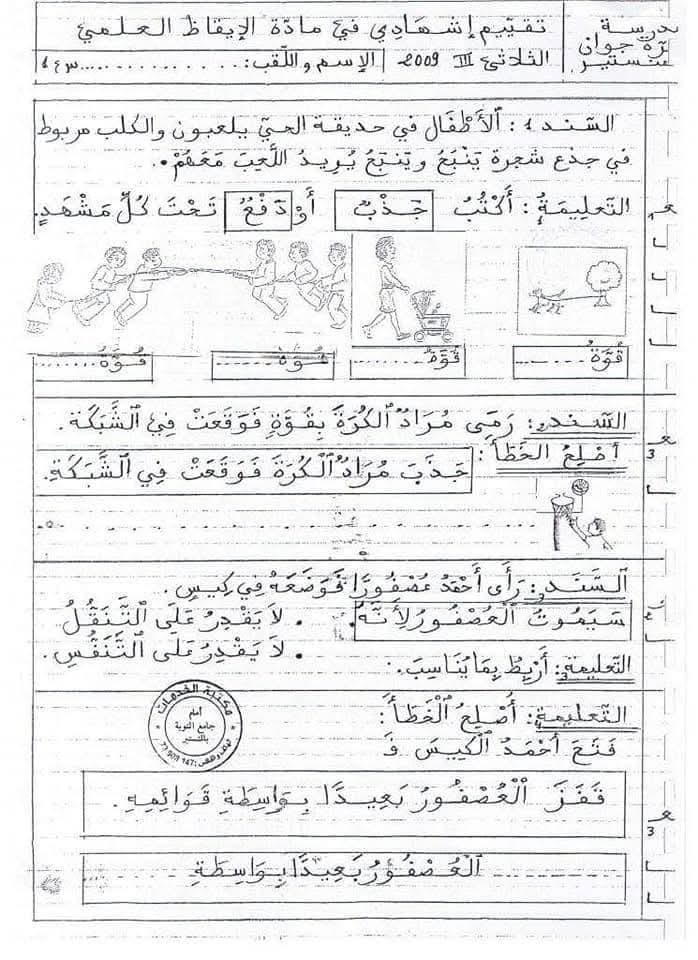 مدرسة
تقييم إشهادي في مادّة الإيقاظ العلمي
الثلاثي III 2009 الإسم واللّقب: .................. س 1
السّند 1: اَلْأَطْفَال في حديقة الحيّ يلعبون والكلب مربوط
في جذع شجرة يَنْبَحُ ويَنْبَحُ يُرِيدُ اللَّعِبَ مَعَهُمْ.
التّعليمَةُ: أَكْتُبُ جَذْبٌ أَوْ دَفْعٌ تَحْتَ كُلِّ مَشْهَدٍ.
قُوَّةُ ........ قُوَّةُ ........ قُوَّةُ ........ قُوَّةُ ........
السّند2: رَمَى مُرَادٌ الكُرَةَ بِقُوَّةٍ فَوَقَعَتْ فِي الشَّبَكَة.
أُصْلِحُ الخَطَأَ: جَذَبَ مُرَادٌ الْكُرَةَ فَوَقَعَتْ فِي الشَّبَكَةِ.
السَّنَد3: رَأَى أَحْمَدُ عُصْفُورًا فَوَضَعَهُ فِي كِيسٍ.
سَيَمُوتُ الْعُصْفُورُ لِأَنَّهُ • لاَ يَقْدِرُ عَلَى التَّنَقُّلُ
• لاَ يَقْدِرُ عَلَى التَّنَفُّسِ.
التعليمة3: أَرْبِطُ بِمَا يُنَاسِبَ.
التَّعليمة: أُصْلِحُ الْخَطَأَ:
فَتَحَ أَحْمَدُ الْكِيسَ فَ
قَفَزَ الْعُصْفُورُ بَعِيدًا بِوَاسِطَةِ قَوَائِمِهِ.
الْعُصْفُورُ بَعِيدًا بِوَاسِطَةِ
مكتبة الخدمات
أمام
جامع التوبة